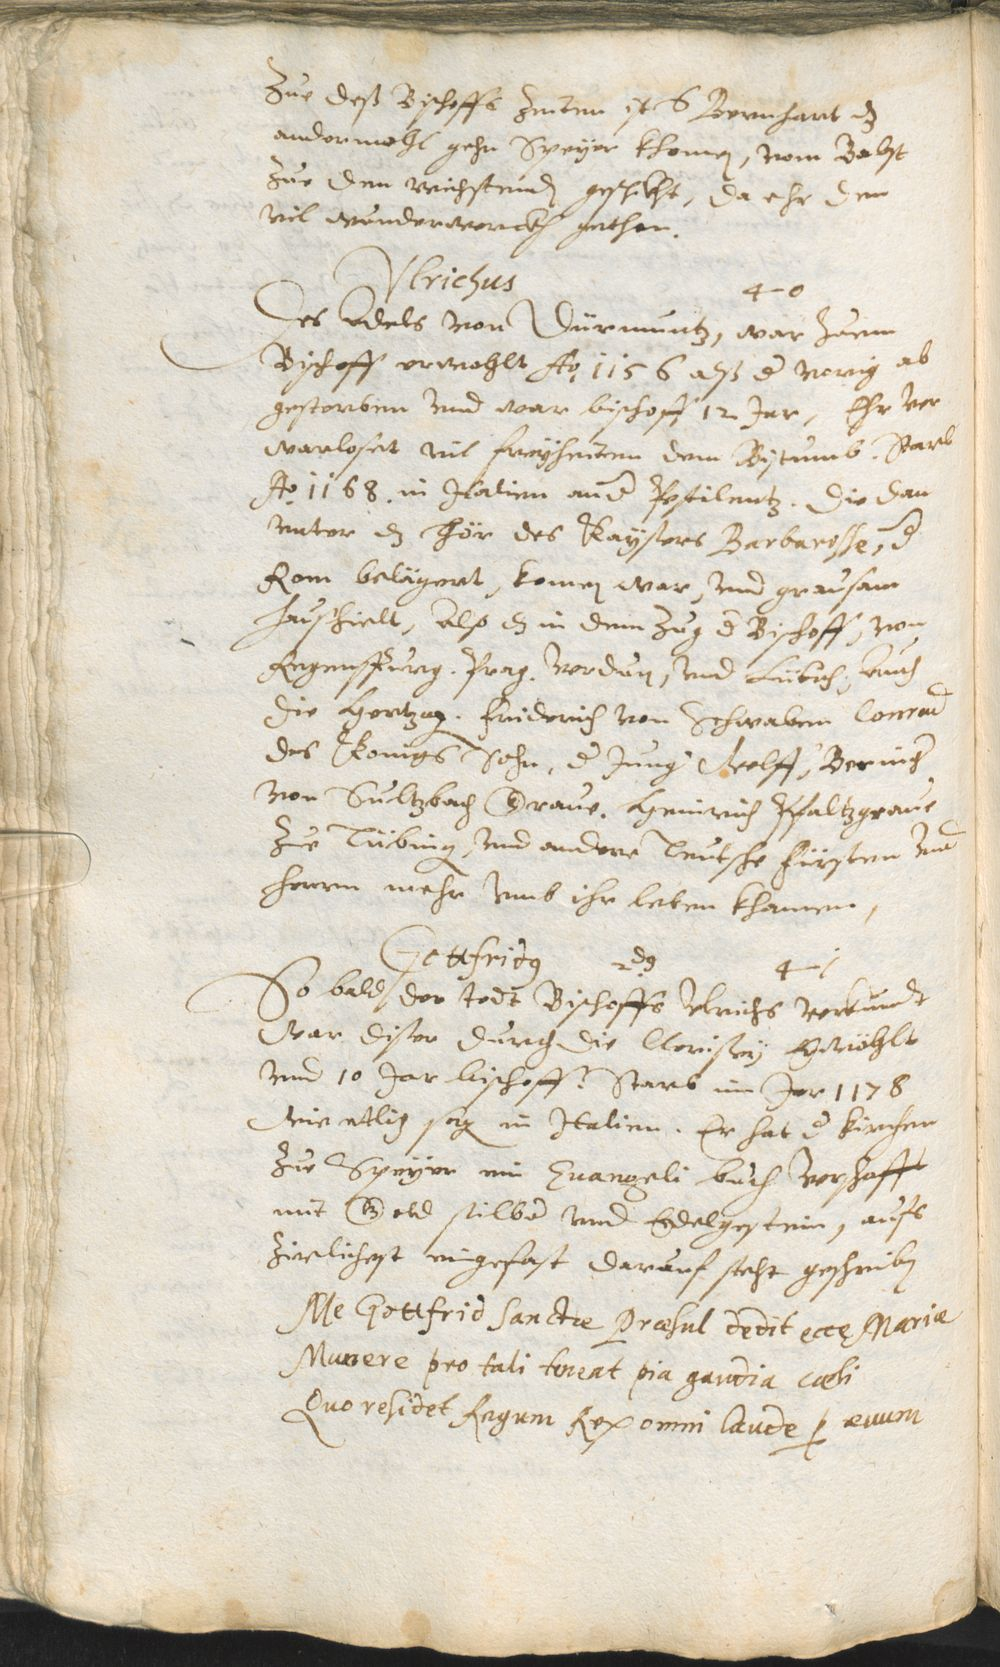 Zue deß Bischoffs Zeitten ist S Bernhart dz
andermohl gehn Speyer khomen, vom Babst
Zue den reichstend geschickht, da ehr den
vil wunderwerckh gethon.
Vlrichus 40
Des Adels von Dürmentz, war Zuem
Bischoff erwohlt Ao 1156 alß d vorig ab
gestorben vnd war bischoff 12 Jar, Ehr ver
warloset vil freyheiten dem Bistumb. Starb
Ao 1168. in Italien an d Pestilentz. die dan
vnter dz Hör des Kaysers Barbarosse, d
Rom belägert, komen war, vnd grausam
haushielt, Also dz in dem Zug d Bischoff, von
Regenspurg. Prag. Verdun, vnd Lübich, auch
die Hertzog. Friderich von Schwaben Conrad
des Konigs Sohn, d Jung Welff, Bering
von Sultzbach Graue. Heinrich Pfaltzgraue
Zue Tübing, vnd andere Teutsche Fürsten vnd
herren mehr vmb ihr leben khamen,
Gottfrid9 2d9 41
So bald der todt Bischoffs Vlrichs verkundt
war diser durch die Clerisey Erwöhlt
vnd 10 Jar bischoff. Starb im Jar 1178
wie etlig sag in Italien. Er hat d kirchen
Zue Speyer ein Euangeli buch verschafft
mit Gold silber vnd Edelgestein, aufs
Zierlichest eingefast darauf steht geschriben
Me Gottfrid Sanctæ Præsul dedit ecce Mariæ
Munere pro tali teneat pia gaudia cæli
Quo residet Regum Rex omni laude p æuum